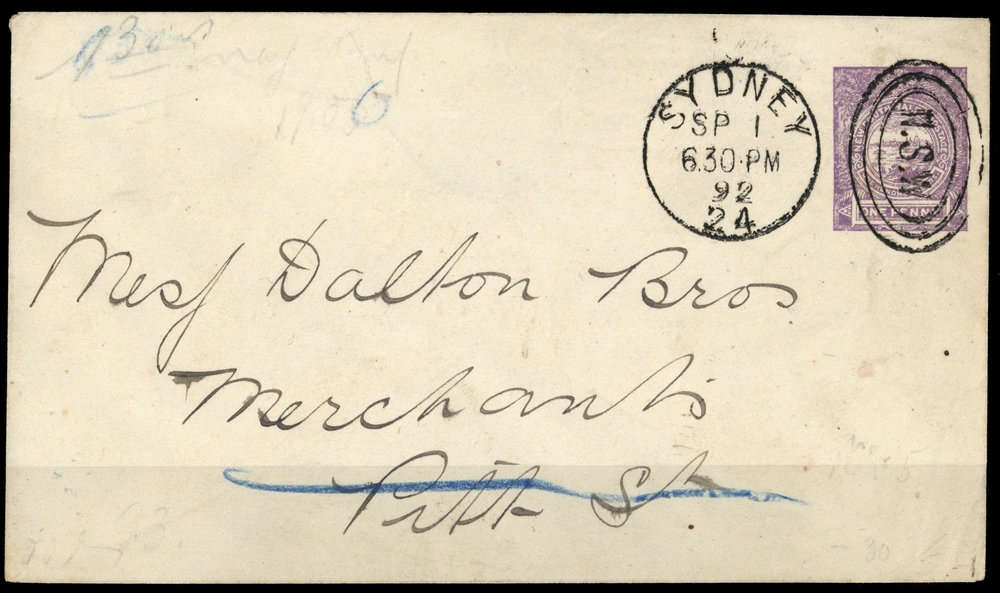 SYDNEY
SP 1
6.30·PM
92
24
N.S.W
ONE PENNY
Messʃ Dalton Bros
Merchants
Pitt St.
30